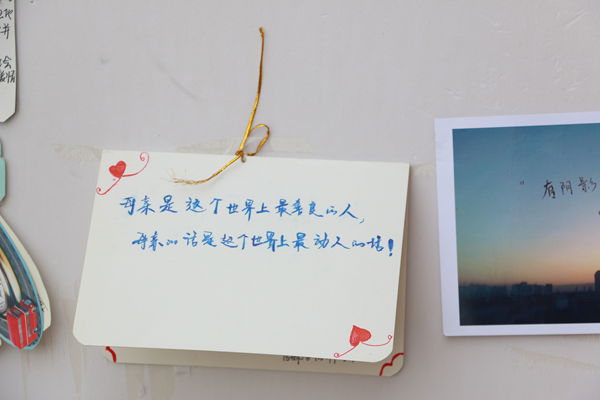 母亲是这个世界上最善良的人，
母亲的话是这个世界上最动人的话！
"有阴影